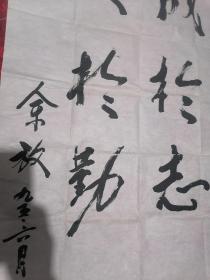 成於志
於勤
余放 九三·六月